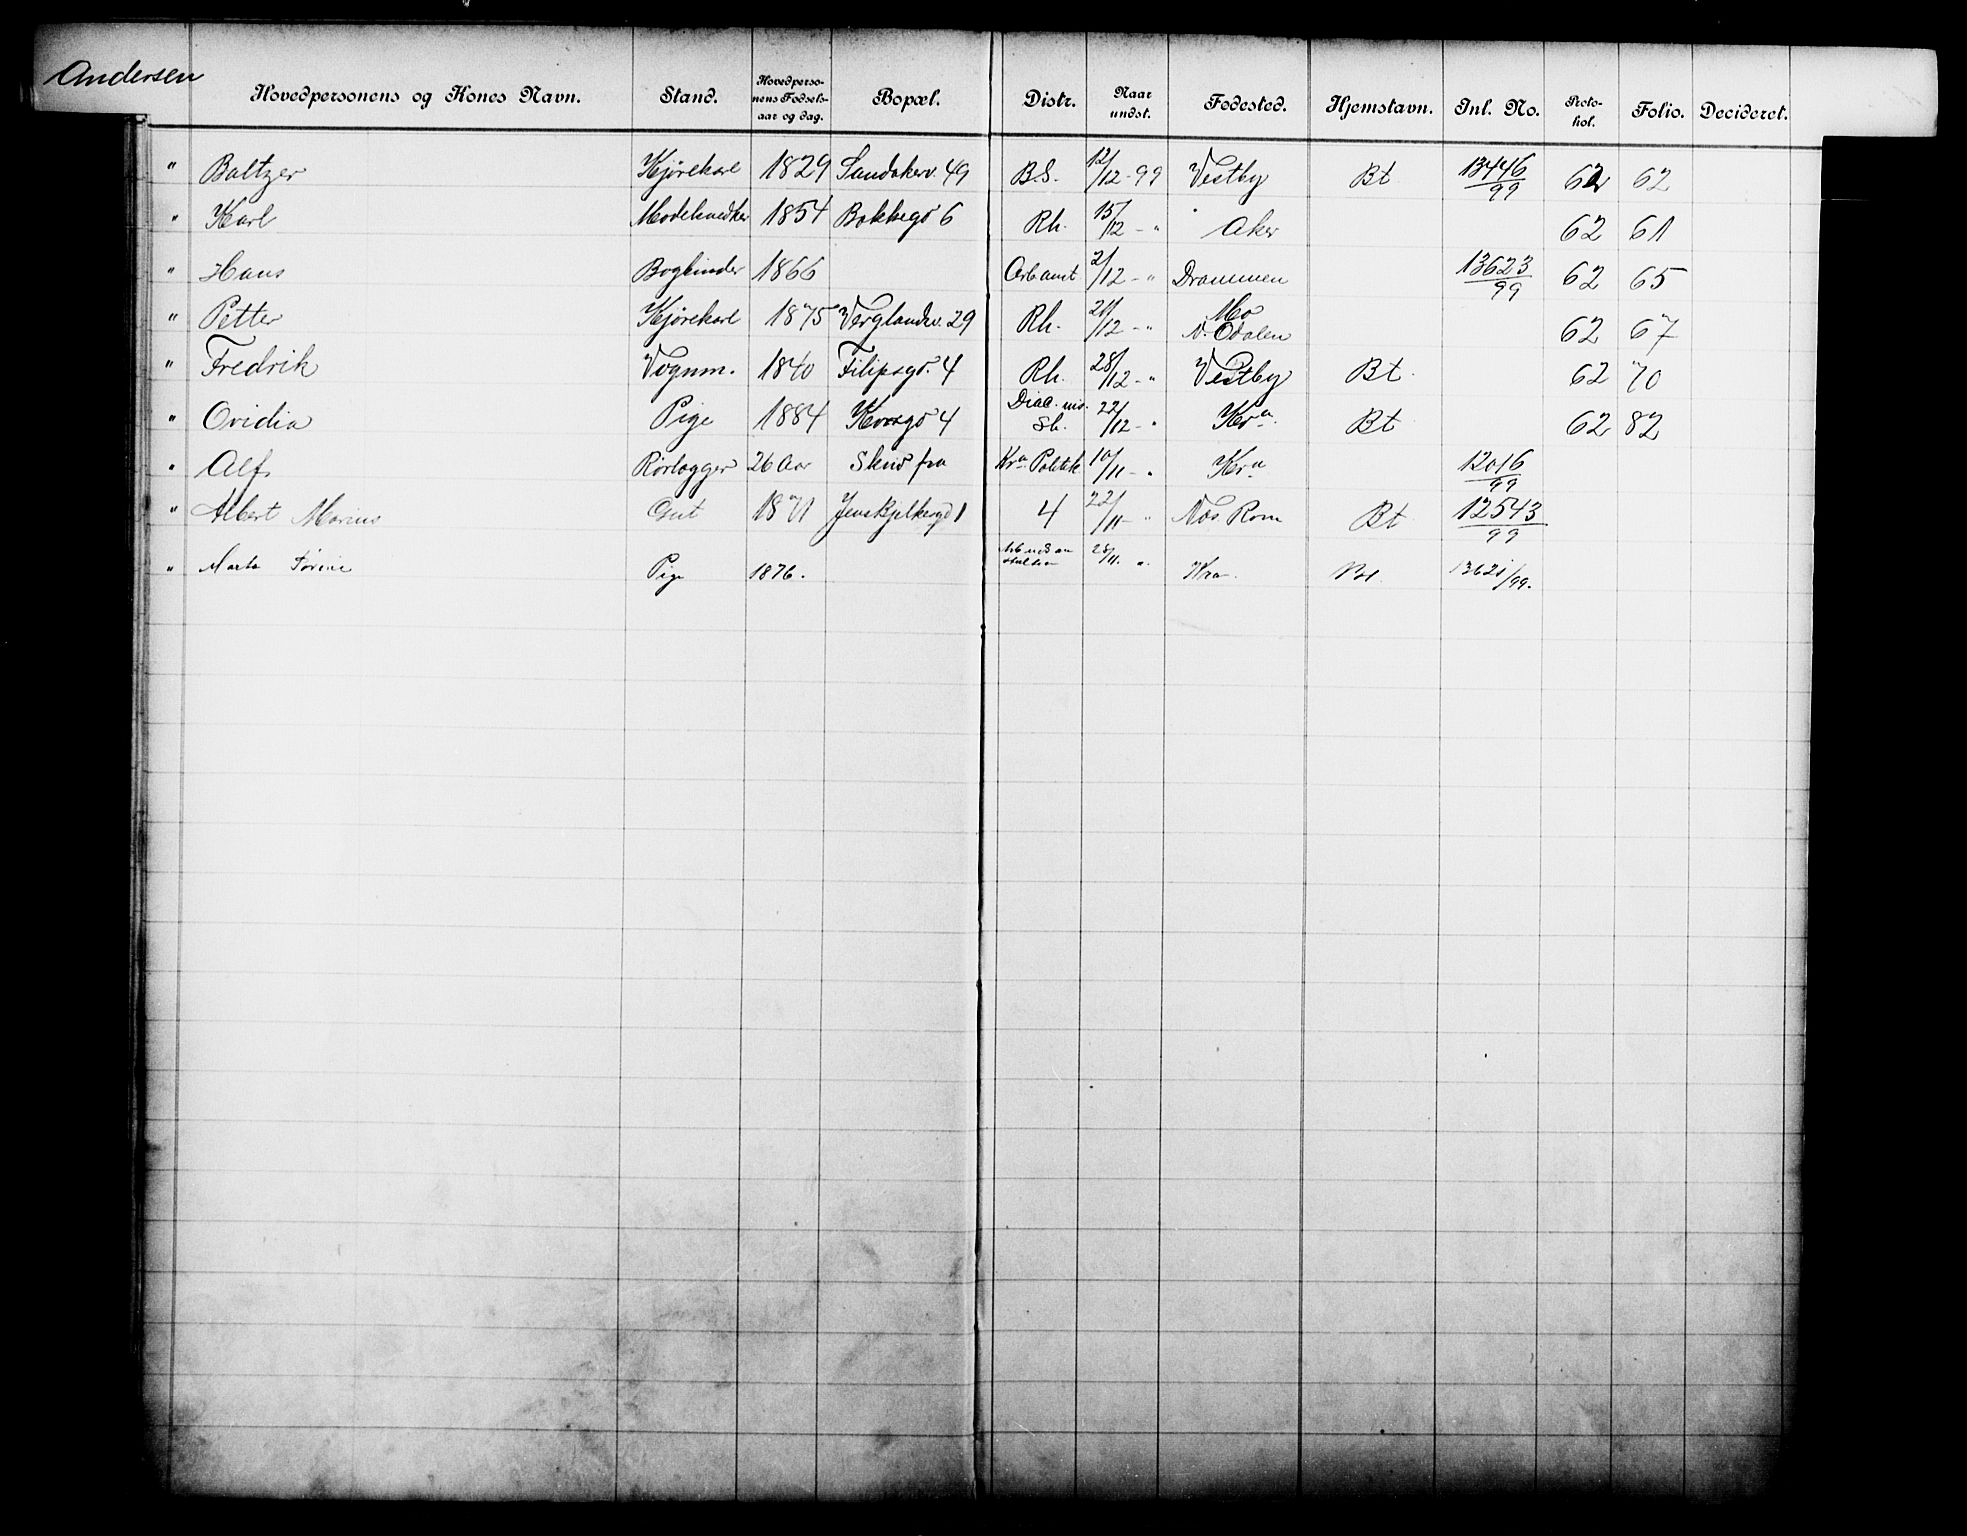 Andersen
Hovedpersonens og Kones Navn. Stand. Hovedpersonens Fødselsaar og dag. Bopæl. Distr. Naar undst. Fødested. Hjemstavn. Inl. No. Protokol. Folio. Decideret.
" Baltzer Kjørekarl 1829 Sandakerv. 49 B.S. 12/12-99 Vestby Bt 13446/99 62 62
" Karl Modelsnedker 1854 Bakkegd 6 Rh. 15/12 - " Aker 62 61
" Hans Bogbinder 1866 Arb anst 2/12 - " Drammen 13623/99 62 65
" Petter Kjørekarl 1875 Verglandsv. 29 Rh. 20/12 - " Mo N. Odalen 62 67
" Fredrik Vognm. 1840 Filipsgd. 4 Rh. 28/12 - " Vestby Bt. 62 70
" Ovidia Pige 1884 4 Diac. Sh. 22/12 - " Kra. Bt 62 82
" Alf Rørlægger 26 Aar Skriv fra Kra Politik 10/11 - " Kra 12016/99
" Albert Marius Gut 1871 1 4 22/11 - " Næs Rom Bt 12543/99
" Marta Tørine Pige 1876. 28/11. " Kra. 13621/99.